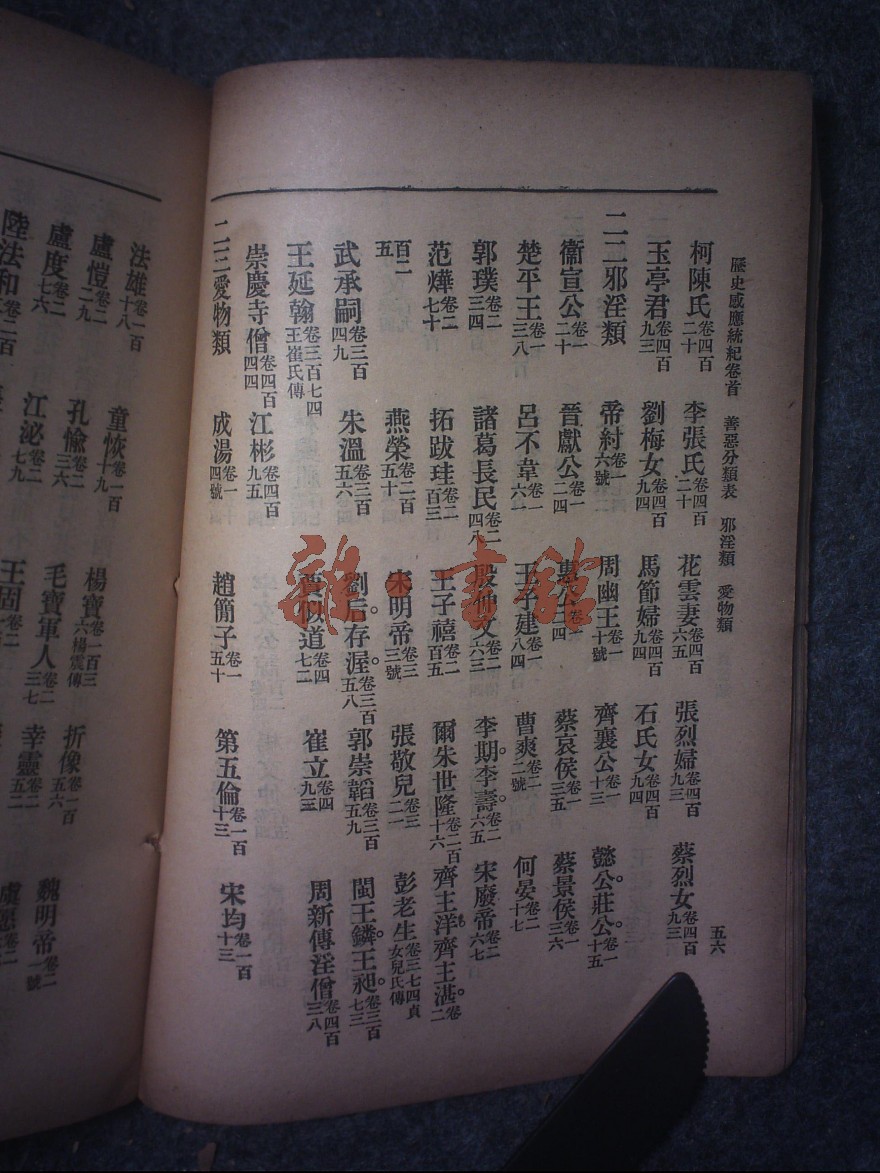 歷史感應統紀卷首　善惡分類表　邪淫類　愛物類　五六
柯陳氏卷四百二十　李張氏卷四百二十　花雲妻卷四百六五　張烈婦卷四百九三　蔡烈女卷四百九三
玉亭君卷四百九三　劉梅女卷四百九四　馬節婦卷四百九四　石氏女卷四百九四
二二邪淫類　帝紂卷一六號　周幽王卷一十號　齊襄公卷一十三　懿公。莊公。卷一十五
衞宣公卷一二十　晉獻公卷一二四　惠公卷一三四　蔡哀侯卷一三五　蔡景侯卷一三六
楚平王卷一三八　呂不韋卷一六一　王子建卷一八四　曹爽卷二二號　何晏卷二十七
郭璞卷二三四　諸葛長民卷二四八　殷仲文卷二六三　李期。李壽。卷二六五　宋廢帝卷二六七
范燁卷二七十　拓跋珪卷二百三　王子禧卷二百五　爾朱世隆卷二百十六　齊主洋。齊主湛。卷二
百二五　燕榮卷二百五十　宋明帝卷三三號　張敬兒卷三二一　彭老生卷三七四貞女兒氏傳
武承嗣卷三百四九　朱溫卷三百五六　劉后。存渥。卷三百五八　郭崇韜卷三百五九　閩王鏻。王昶。卷三百七三
王延翰卷三百七四王崔氏傳　賈似道卷四七二　崔立卷四九三　周新傳淫僧卷四百三八
崇慶寺僧卷四百四四　江彬卷四百九五
二三愛物類　成湯卷一四號　趙簡子卷一五十　第五倫卷一百十三　宋均卷一百十三
法雄卷一百十八　童恢卷一百十九　楊寶卷一百三六楊震傳　折像卷一百五六　魏明帝卷二一號
盧愷卷二二九　孔愉卷二三六　毛寶軍人卷二三七　幸靈卷二五二
盧度卷二七六　江泌卷二七九　王固卷二
陸法和卷二百